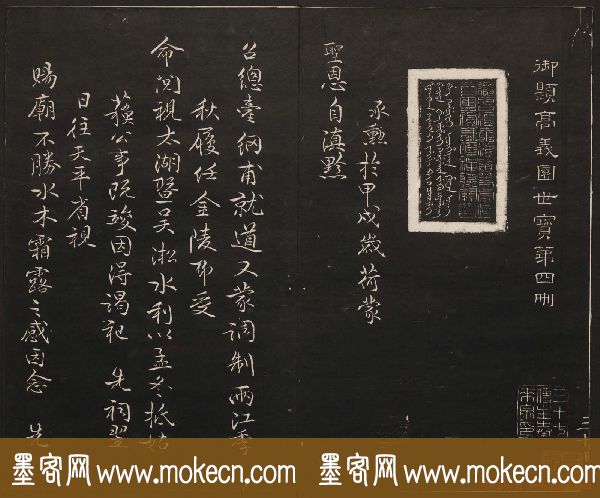 御題高義園世寶第四冊
承勳於甲戌歲荷蒙
聖恩自滇黔
召總臺綱甫就道又蒙調制兩江季
秋履任金陵即受
命閱視太湖暨吳淞水利以孟冬抵姑
蘇公事既竣因得謁祀 先祠翌
日往天平省視
賜廟不勝水木霜露之感因念 先
墨客网 www.mokecn.com 墨客网 www.mokecn.com